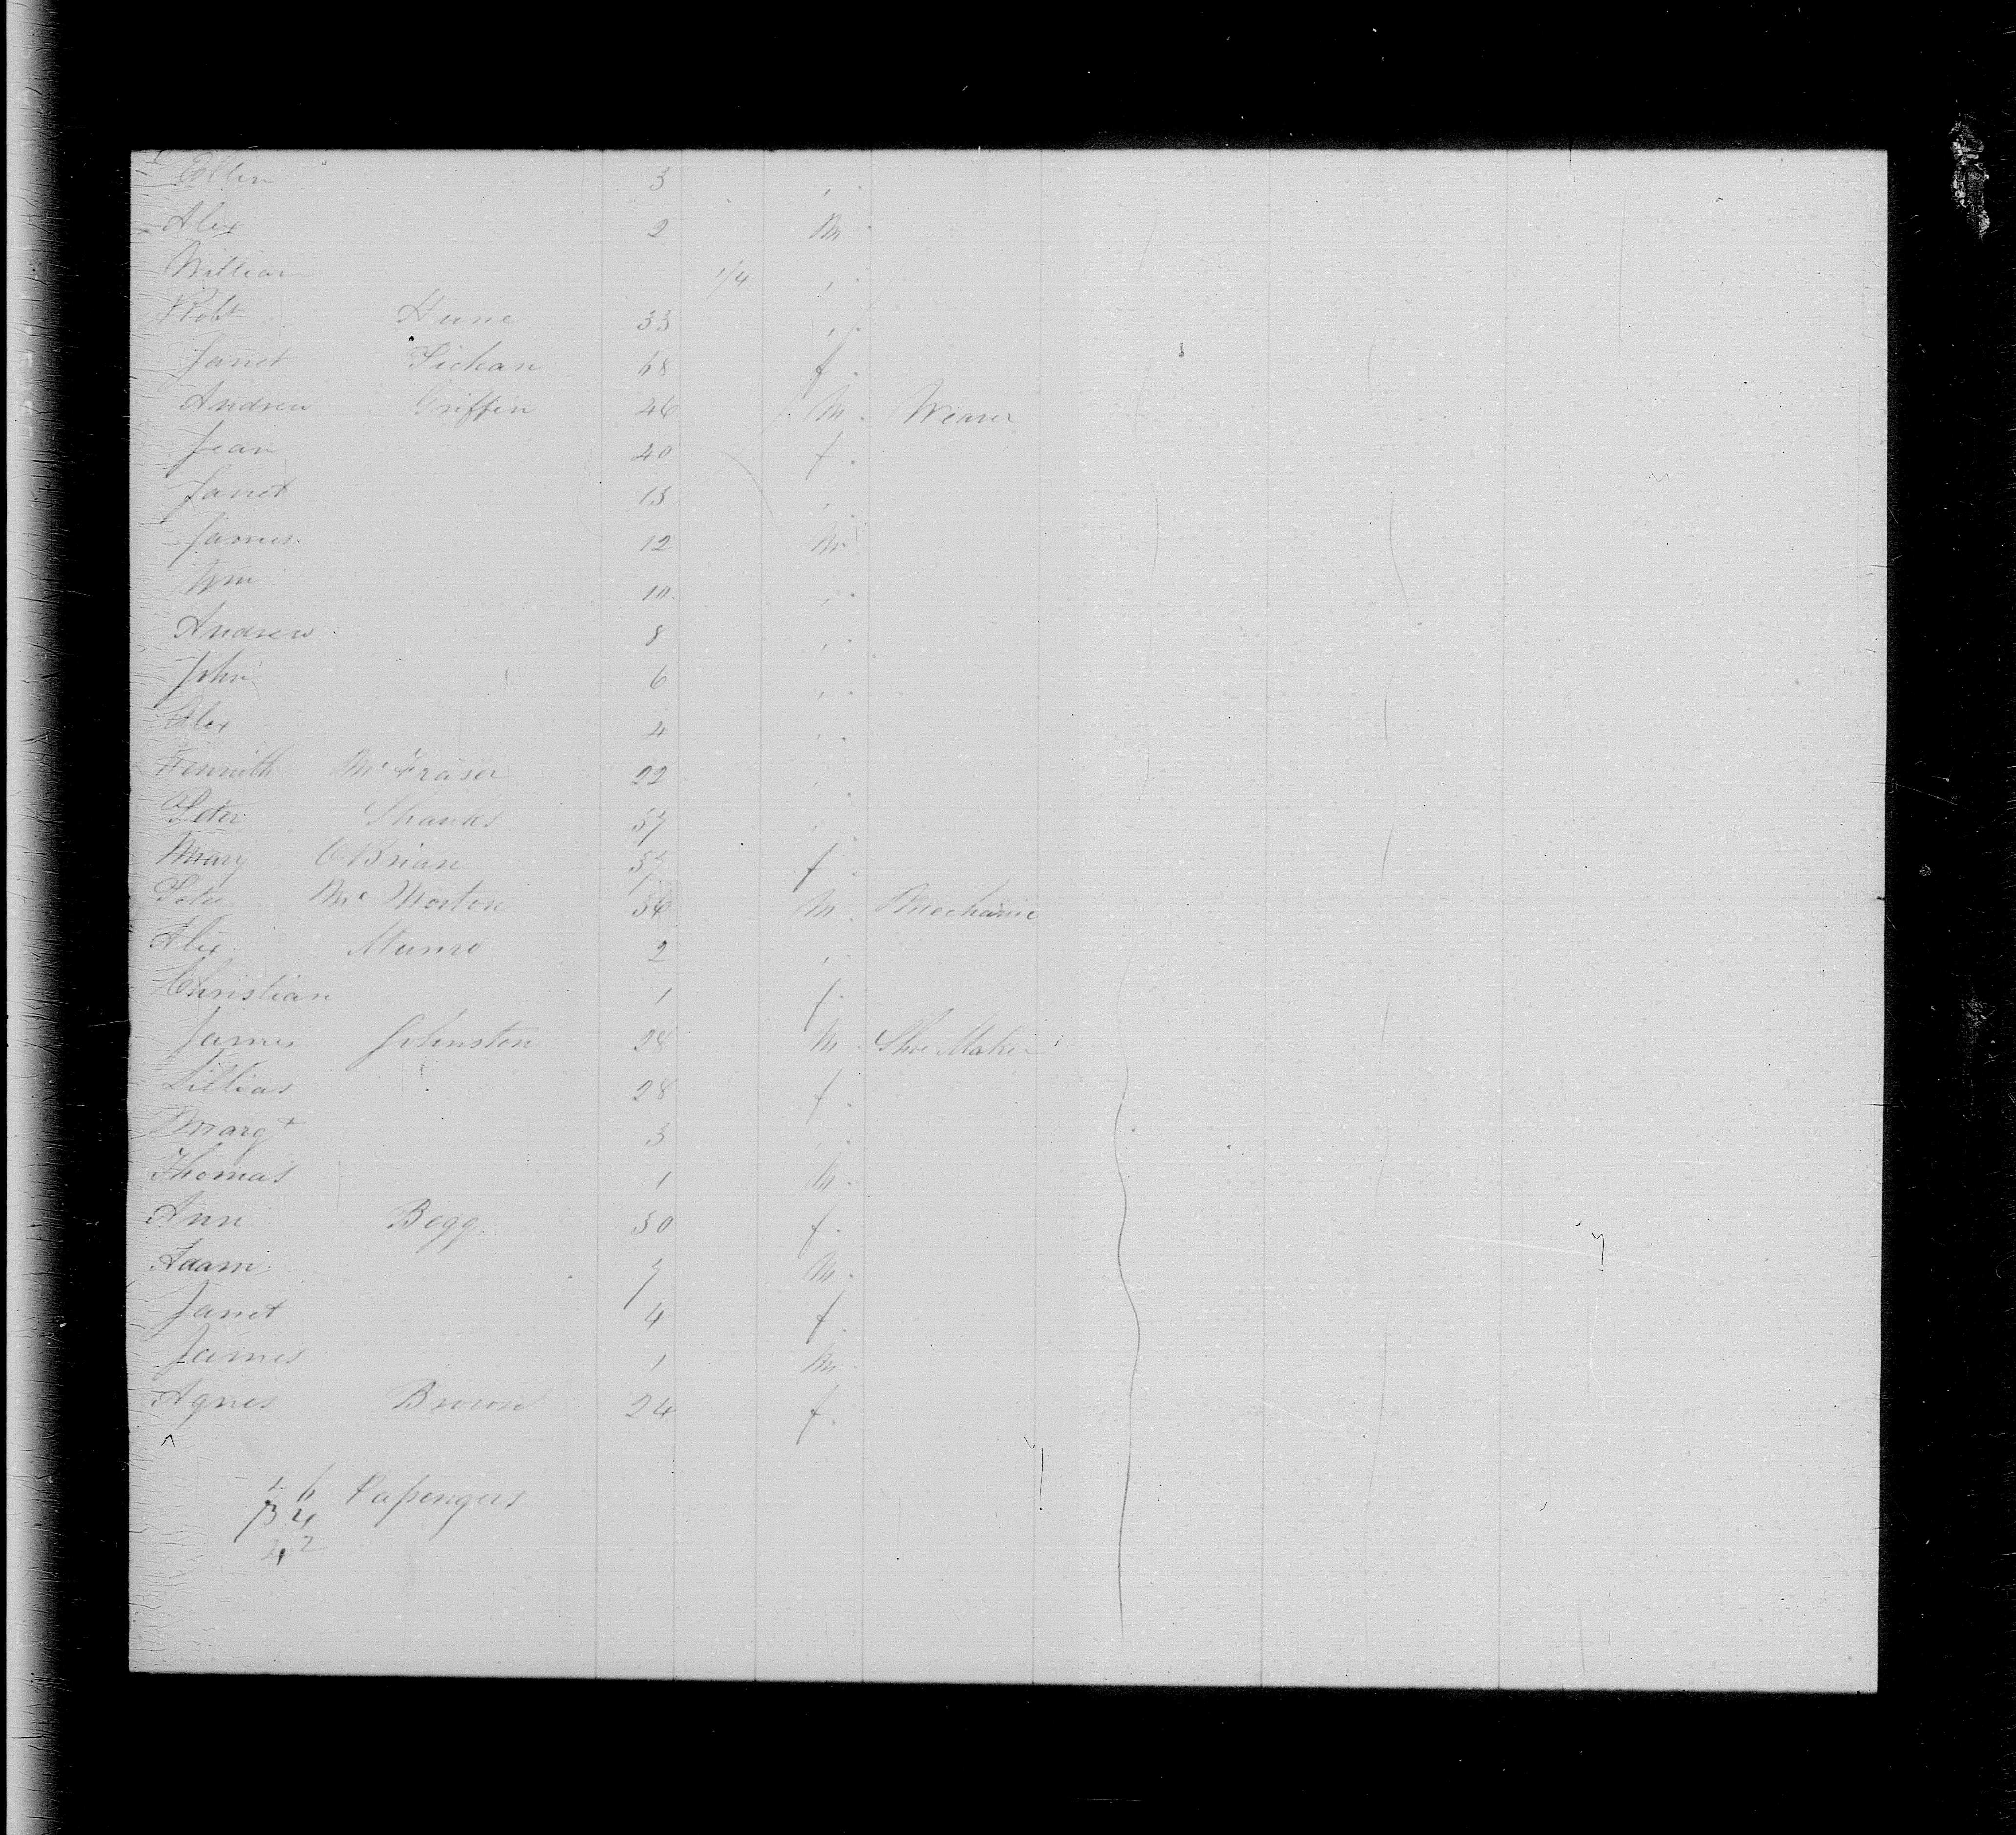 Ellen 3 "
Alex 2 M
William 1/4 "
Robt Hume 33 "
Janet Dickan 68 f
Andrew Griffen 46 M Weaver
Jean 40 f
Janet 13 "
James 12 M
Wm 10 "
Andrew 8 "
John 6 "
Alex 4 "
Kennith Mc Fraser 22 "
Peter Shanks 37 "
Mary O Brian 37 f
Peter Mc Morton 36 M Mechanic
Alex Munro 2 "
Christian 1 f
James Johnston 28 M Shoe Maker
Lillias 28 f
Margt 3 "
Thomas 1 M
Ann Begg 30 f
Adam 7 M
Janet 4 f
James 1 M
Agnes Brown 24 f
Passengers